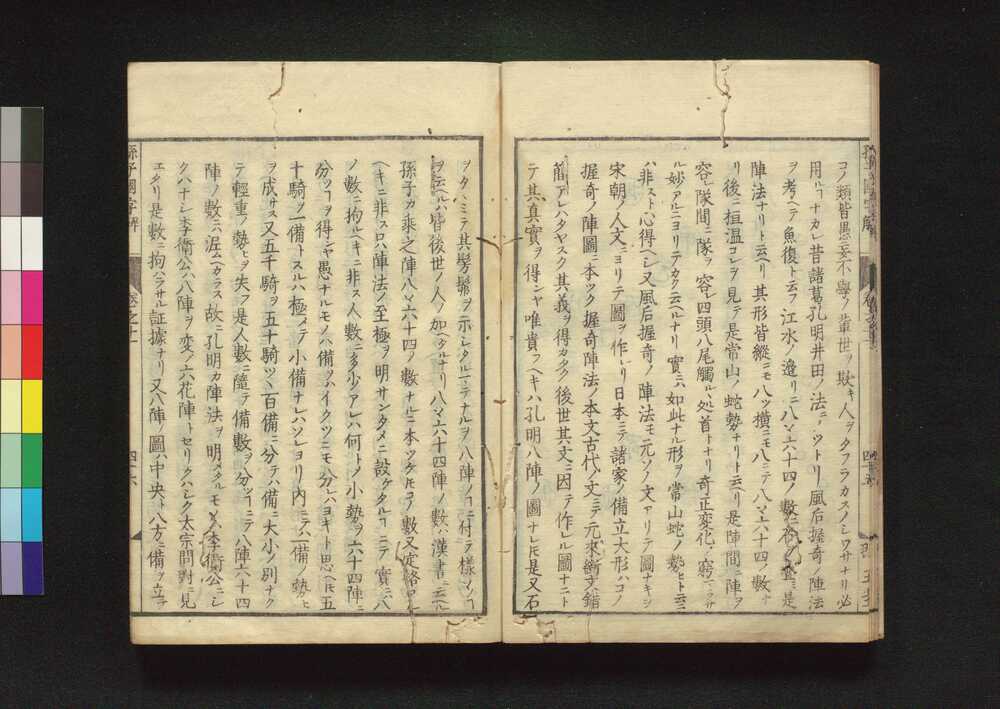 コノ類皆愚妄不學ノ輩世ヲ欺キ人ヲタフラカスノシワサナリ必
用ルコナカレ昔諸葛孔明井田ノ法ニノツトリ風后握奇ノ陣法
ヲ考ヘテ魚復ト云フ江水ノ邊リニ八八六十四ノ數ニ石ヲ是
陣法ナリト云ヘリ其形皆縱ニモ八ツ横ニモ八ニテ八八六十四ノ數ナ
リ後ニ桓温コレヲ見テ是常山ノ蛇勢ナリト云ヘリ是陣間ニ陣ヲ
容レ隊間ニ隊ヲ容レ四頭八尾觸ルル処首トナリ奇正変化ノ窮ラサ
ル妙アルニヨリテカク云ヘルナリ實ニハ如此ナル形ヲ常山蛇ノ勢ヒト云ニ
ハ非スト心得ヘシ又風后握奇ノ陣法モ元ソノ文アリテ圖ナキヲ
宋朝ノ人文ニヨリテ圖ヲ作レリ日本ニテ諸家ノ備立大形ハコノ
握奇ノ陣圖ニ本ツク握奇陣法ノ本文古代ノ文ニテ元來衍文錯
簡アレハタヤスク其義ヲ得カタク後世其文ニ因テ作レル圖ナニト
テ其真實ヲ得ンヤ唯貴フヘキハ孔明八陣ノ圖ナレ𪜈是又石
ヲタヽミテ其髣髴ヲ示シタルマテナルヲ八陣ノコニ付テ樣々ノコ
ヲ云ヘルハ皆後世ノ人ノ加ヘタルナリ八八六十四陣ノ數ハ漢書ニ云ヘル
孫子カ乘之陣八八六十四ノ數ナルニ本ツケ𪜈コノ數又定格
ヘキニ非ス只陣法ノ至極ヲ明サンタメニ設ケタルコニテ實ニハ八
ノ數ニ拘ルヘキニ非ス人數ニ多少アレハ何トノ小勢ヲ六十四陣ニ
分ツコヲ得ンヤ愚ナルモノハ備ヲハイクツニモ分レハヨキト思ヘ𪜈五
十騎ヲ一備トスルハ極メテ小備ナレハソレヨリ内ニテハ一備ノ勢ヒ
ヲ成サス又五千騎ヲ五十騎ツヽ百備ニ分テハ備ニ大小ノ別ナク
テ輕重ノ勢ヒヲ失フ是人數ニ隨テ備數ヲ分ツコニテ八陣六十四
陣ノ數ニハ泥ムヘカラス故ニ孔明カ陣法ヲ明メタルモノ李衛公ニシ
クハナシ李衛公八陣ヲ変ノ六花陣トセリクハシク太宗問對ニ見
エタリ是數ニ拘ハラサル証據ナリ又八陣ノ圖ハ中央ト八方ニ備ヲ立ツ
孫子國字解
卷之十一
四十六